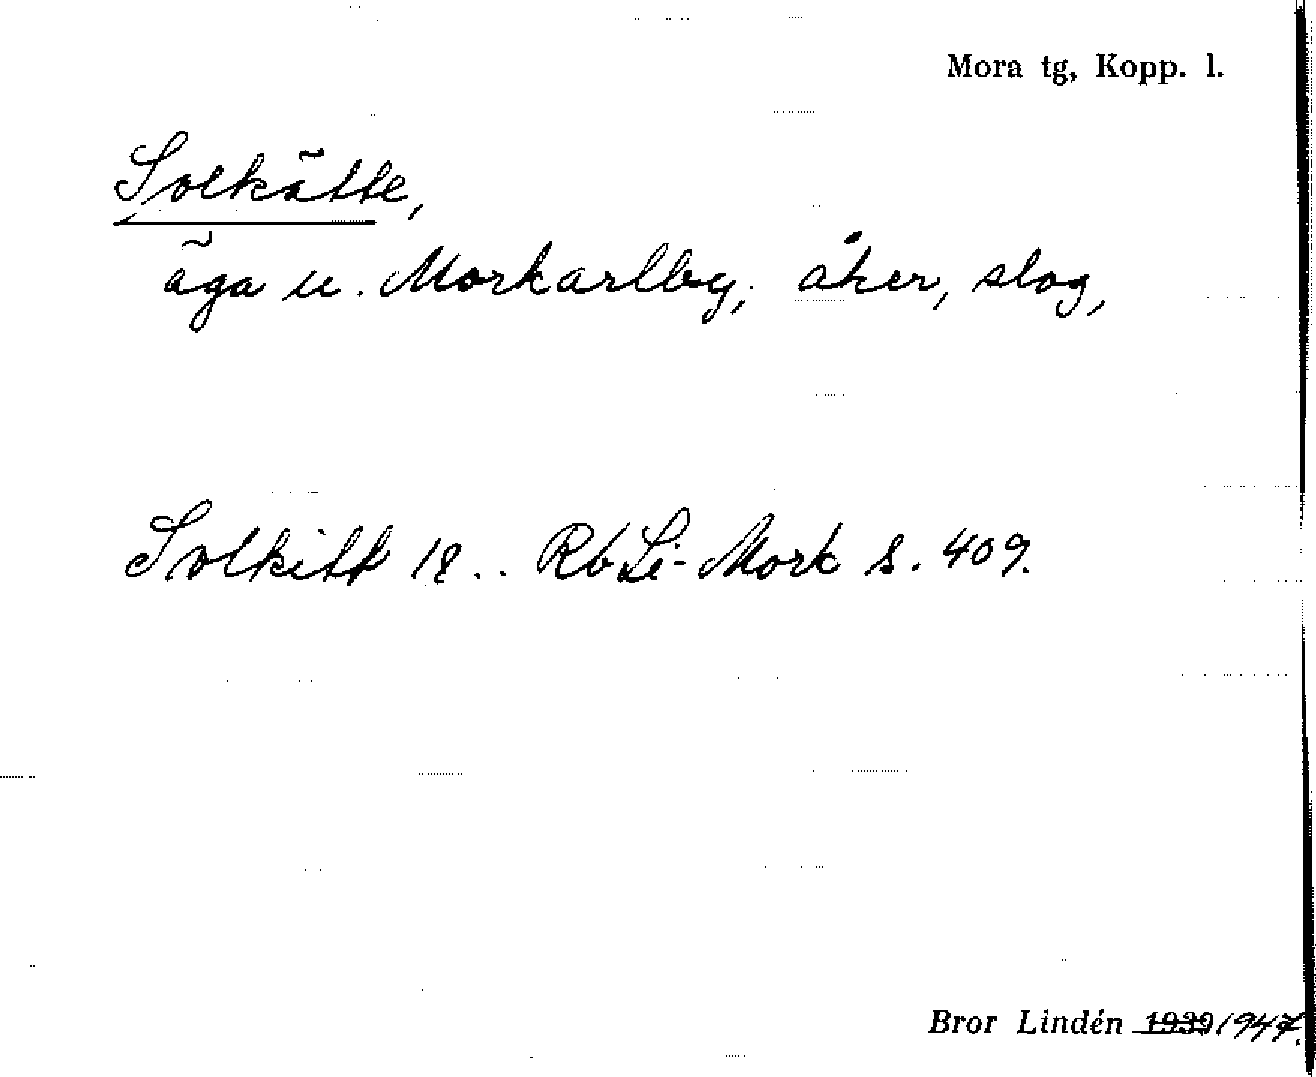 Mora tg, Kopp. l.
Solkätte,
äga u. Morkarlby; åker, slog,
Solkitt 18.. Rb Li-Mork s. 409.
Bror Lindén 1939 1947.